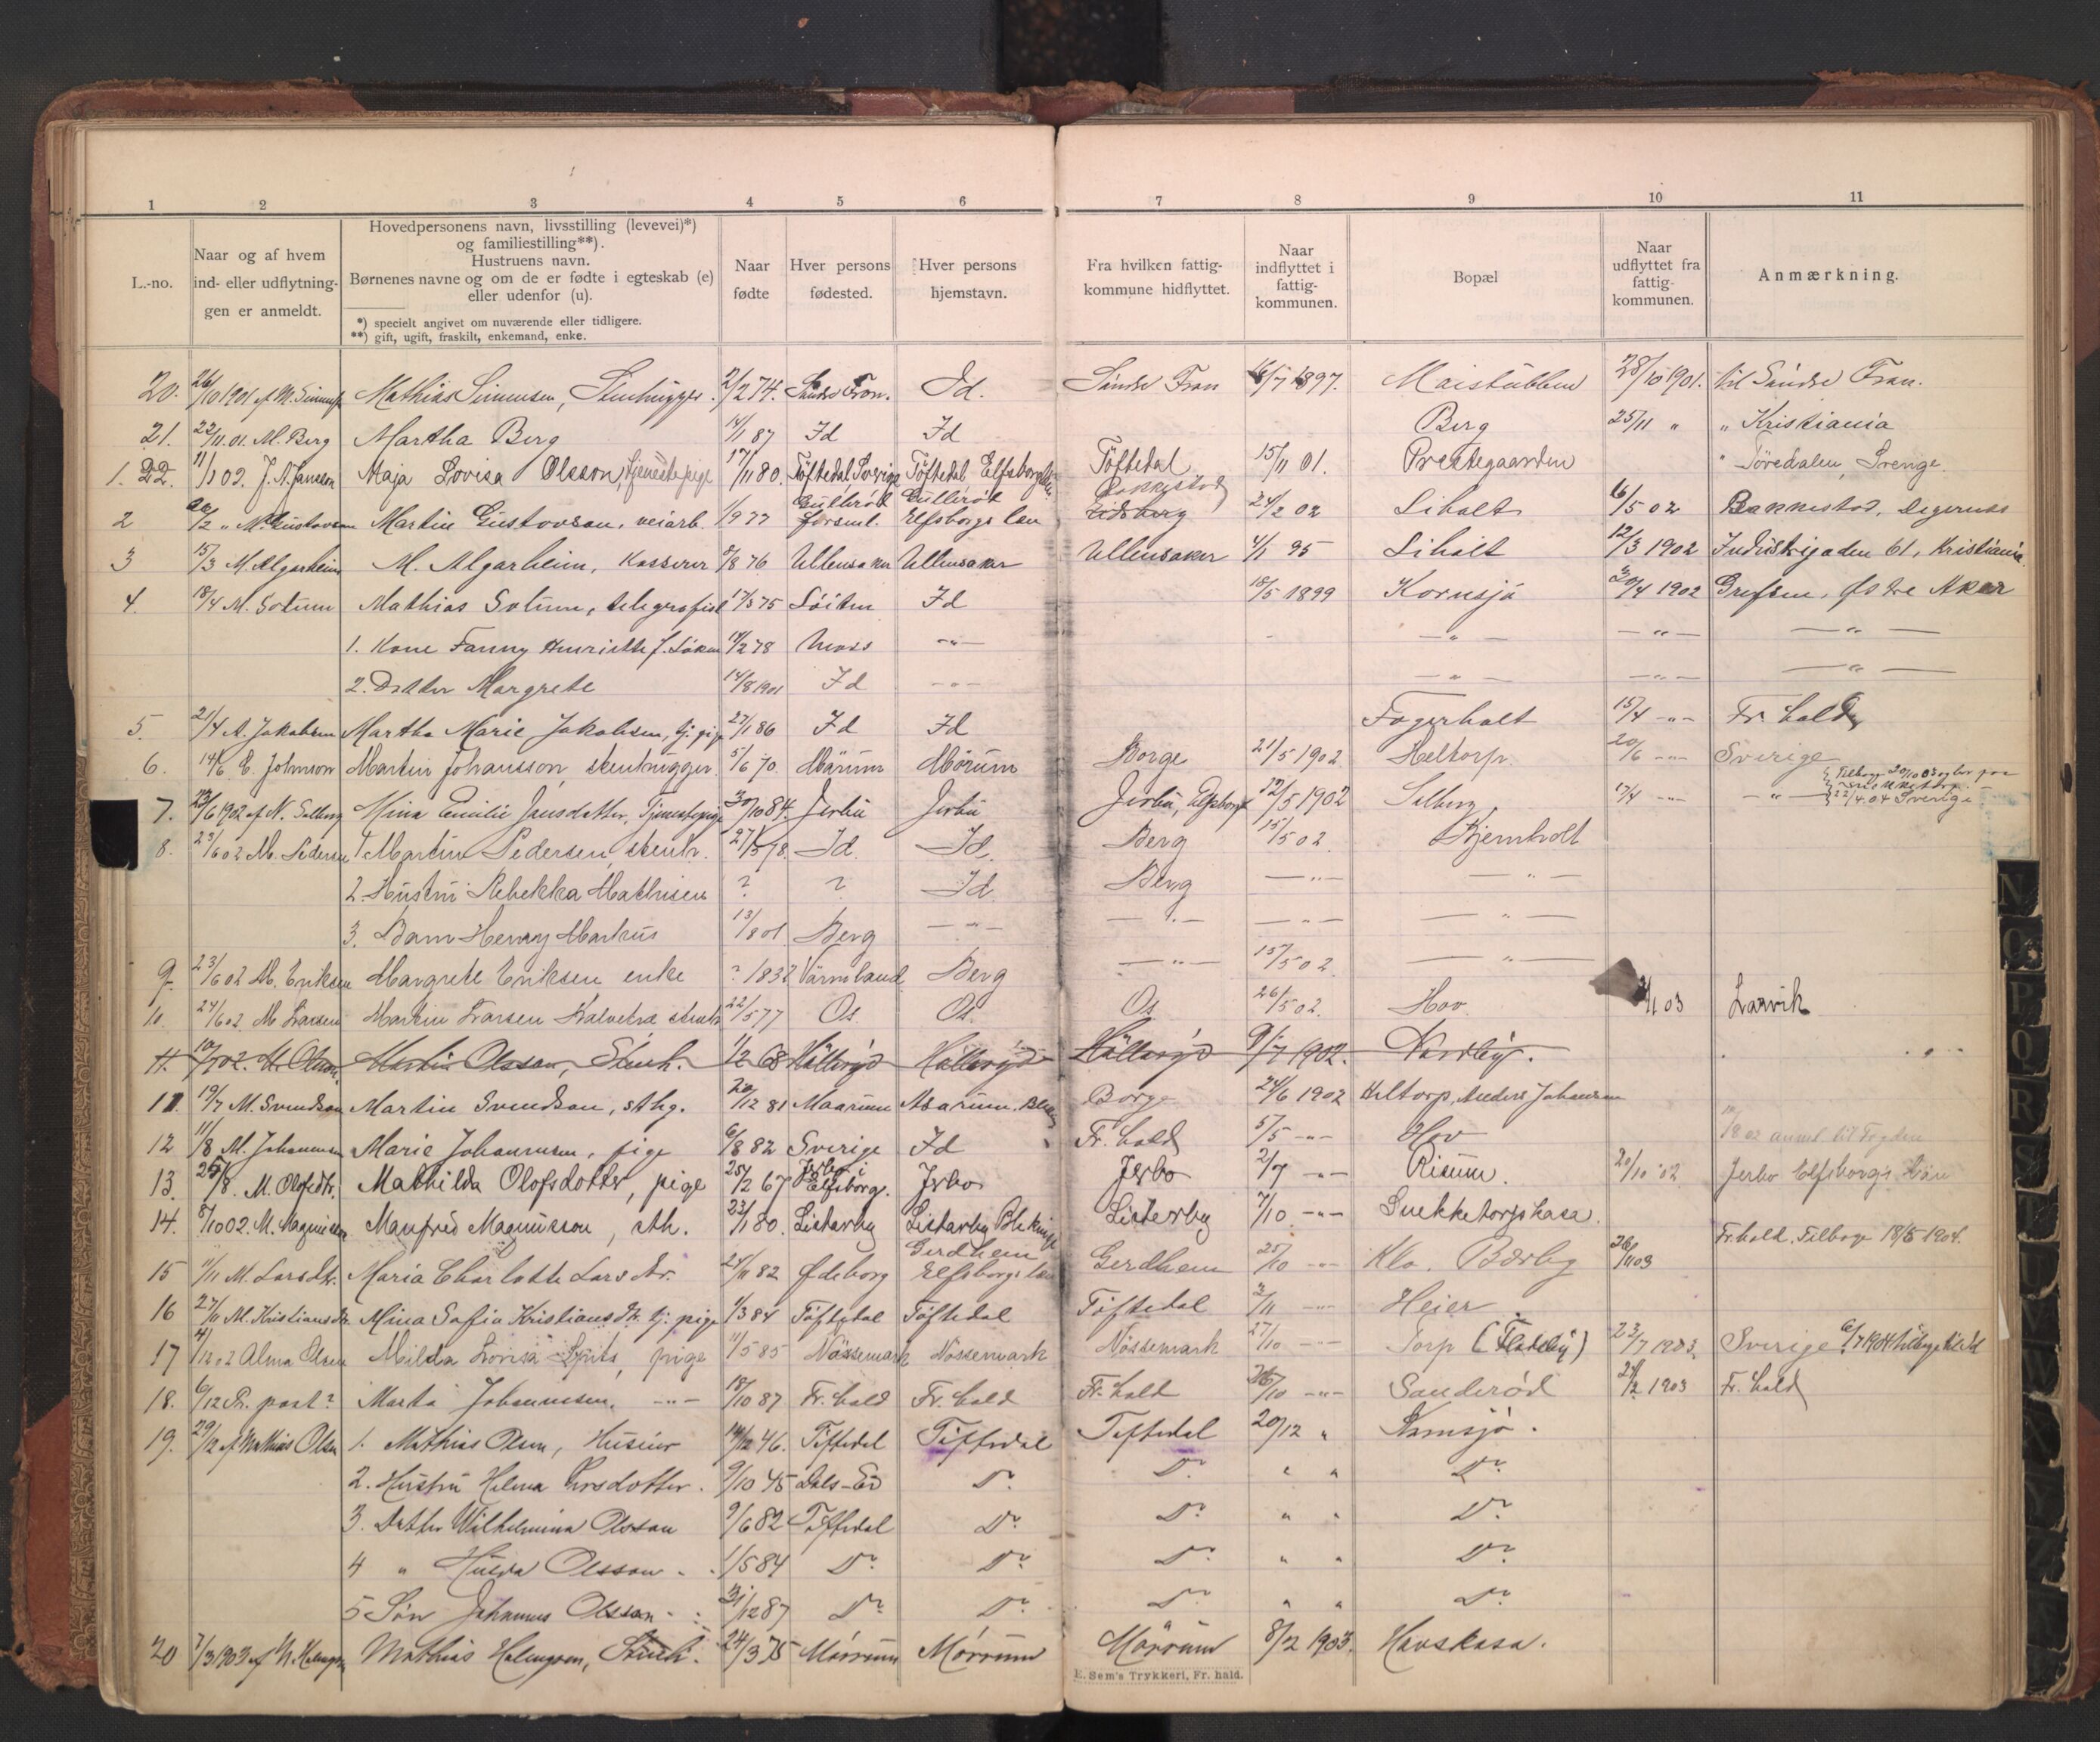 1 2 3 4 5 6 7 8 9 10 11
L.-no.
Naar og af hvem
ind- eller udflytnin-
gen er anmeldt.
Hovedpersonens navn, livsstilling (levevei)*)
og familiestilling**).
Hustruens navn.
Børnenes navne og om de er fødte i egteskab (e)
eller udenfor (u).
*) specielt angivet om nuværende eller tidligere.
**) gift, ugift, fraskilt, enkemand, enke.
Naar
fødte
Hver persons
fødested.
Hver persons
hjemstavn.
Fra hvilken fattig-
kommune hidflyttet.
Naar
indflyttet i
fattig-
kommunen.
Bopæl
Naar
udflyttet fra
fattig-
kommunen.
Anmærkning.
20. 26/10 1901 af M. Simensen Mathias Simensen, Stenhugger. 2/2 74. Søndre Fron. Id. Søndre Fron 6/7 1897. Maistubben 28/10 1901. til Søndre Fron.
21. 22/11.01. M. Berg Martha Berg 14/1 87 Id Id Berg 25/11 " " Kristiania
1. 22. 11/1 02. J. A. Jansson Maja Lovisa Olsson, tjenestepige 17/11 80. Töftedal Sverige Töftedal Elfsborgs län Töftedal 15/11 01. Prestegaarden " Töredalen, Sverige.
2 20/2 " M. Gustavsen Martin Gustovsan, veiarb. 1/9 77 Gullbröt forsml. Gullbröt Elfsborgs län Eidsberg Bakkestad 24/2 02 Liholt 6/5 02 Bakkestad, Degernes
3 15/3 M. Algarheim M. Algarheim, Kasserer 5/8 76 Ullensaker Ullensaker Ullensaker 4/1 95 Liholt 12/3 1902 Industrigaden 61, Kristiania
4. 18/4 M. Sotum Mathias Sotum, telegrafist 17/3 75 Löiten Id 18/5 1899 Kornsjö 30/4 1902 Grefsen, Østre Aker
1. Kone Fanny Henriette f. Løken 14/2 78 Moss -"- -"- -"- -"-
2. Datter Margrete 14/8 1901 Id -"- -"- -"- -"-
5. 21/4 A. Jakobsen Martha Marie Jakobsen, tj. pige 27/1 86 Id Id Fagerholt 15/4 -"- Fr. hald
6. 14/6 E. Johnson Martin Johansson, stenhugger. 5/6 70. Mörum Mörum Borge 21/5 1902. Heltorp. 20/6 -"- Sverige
7. 23/6 1902 af N. Solberg Mina Emilie Jansdatter, Tjenestepige 30/10 84. Jerbu Jerbu Jerbu, Elfsborg 12/5 1902 Solberg 17/4 -"- -"- 22/4.04 Sverige
8. 23/6 02 M. Pedersen 1 Martin Pedersen, stenh. 27/5 78. Id. Id. Berg 15/5 02. Bjernholt
2. Hustru Rebekka Mathisen ? ? Id. Berg -"- -"-
3. Barn Henry Markus 13/8 01 Berg -"- -"- -"- -"-
9. 23/6 02 M. Eriksen Margrete Eriksen enke ? 1832 Värmland Berg -"- 15/5 02. -"-
10. 24/6 02 M. Larsen Martin Larsen Kalvetra stenh 22/5 77 Os. Os. Os. 26/5 02. Hov. 1/1 03 Larvik
11. 10/7 02. M. Olsson. Martin Olsson, Stenh. 11/2 68 Hällaryd Hällaryd Hällaryd 9/7 1902. Nordby.
11. 19/7 M. Svendsen Martin Svendsen, sthg. 20/12 81 Maarum Asarum, Blek Borge 24/6 1902 Heltorp, Anders Johansen
12 11/8 M. Johannesen Marie Johannesen, pige 6/8 82 Sverige Id Fr. hald 5/5 -"- Hov
13. 25/8. M. Olofsdtr. Mathilda Olofsdotter, pige 25/2 67 Jerbo i Elfsborg. Jerbo Jerbo 2/7 -"- Risum. 20/10 02 Jerbo Elfsborgs Län
14. 8/10 02. M. Magnusson Manfred Magnusson, sth. 23/1 80. Listerby Listerby Blekinge Listerby 7/10 -"- Snekketorpskasa.
Fr. hald. Tilbage 18/5 1904.
15 11/11 M. Larsdtr. Maria Charlotte Larsdtr. 24/11 82 Ødeborg Gerdhem Elfsborgs län Gerdhem 25/10 -"- Klo. Bærby 26/11 03
16 27/11 M. Kristiansdtr. Mina Sofia Kristiansdtr. tj. pige 1/3 84 Töftedal Töftedal Töftedal 2/11 -"- Heier
17 4/12 02 Alma Olsen Milda Lovisa, pige 11/5 85 Nössemark Nössemark Nössemark 27/10 -"- Torp (Fladeby) 23/7 1903. Sverige.
18. 6/12 Pr. post? Marta Johannesen. -"- 18/10 87 Fr. hald Fr. hald Fr. hald 26/10 -"- Sanderød 24/2 1903 Fr. hald
19. 29/12 af Mathias Olsen 1. Mathias Olsen, Huseier 14/12 46. Töftedal Töftedal Töftedal 20/12 " Kornsjö.
2. Hustru Helena Larsdotter. 9/10 45 Dals-Ed Do. Do. " " Do.
3. Datter Wilhelmina Olssan 9/6 82 Töftedal Do. Do. " " Do.
4 " Hulda Olsson " 1/5 84 Do. Do. Do. " " Do.
5 Søn Johannes Olsson " 31/12 87 Do. Do. Do. " " Do.
20 7/3 1903 af M. Holmgren Mathias Holmgren, Stenh. 24/3 75 Mörrum Mörrum Mörrum 8/2 1903. Havskasa.
E. Sem's Trykkeri, Fr. hald.
N
O
P
Q
R
S
T
U
V
W